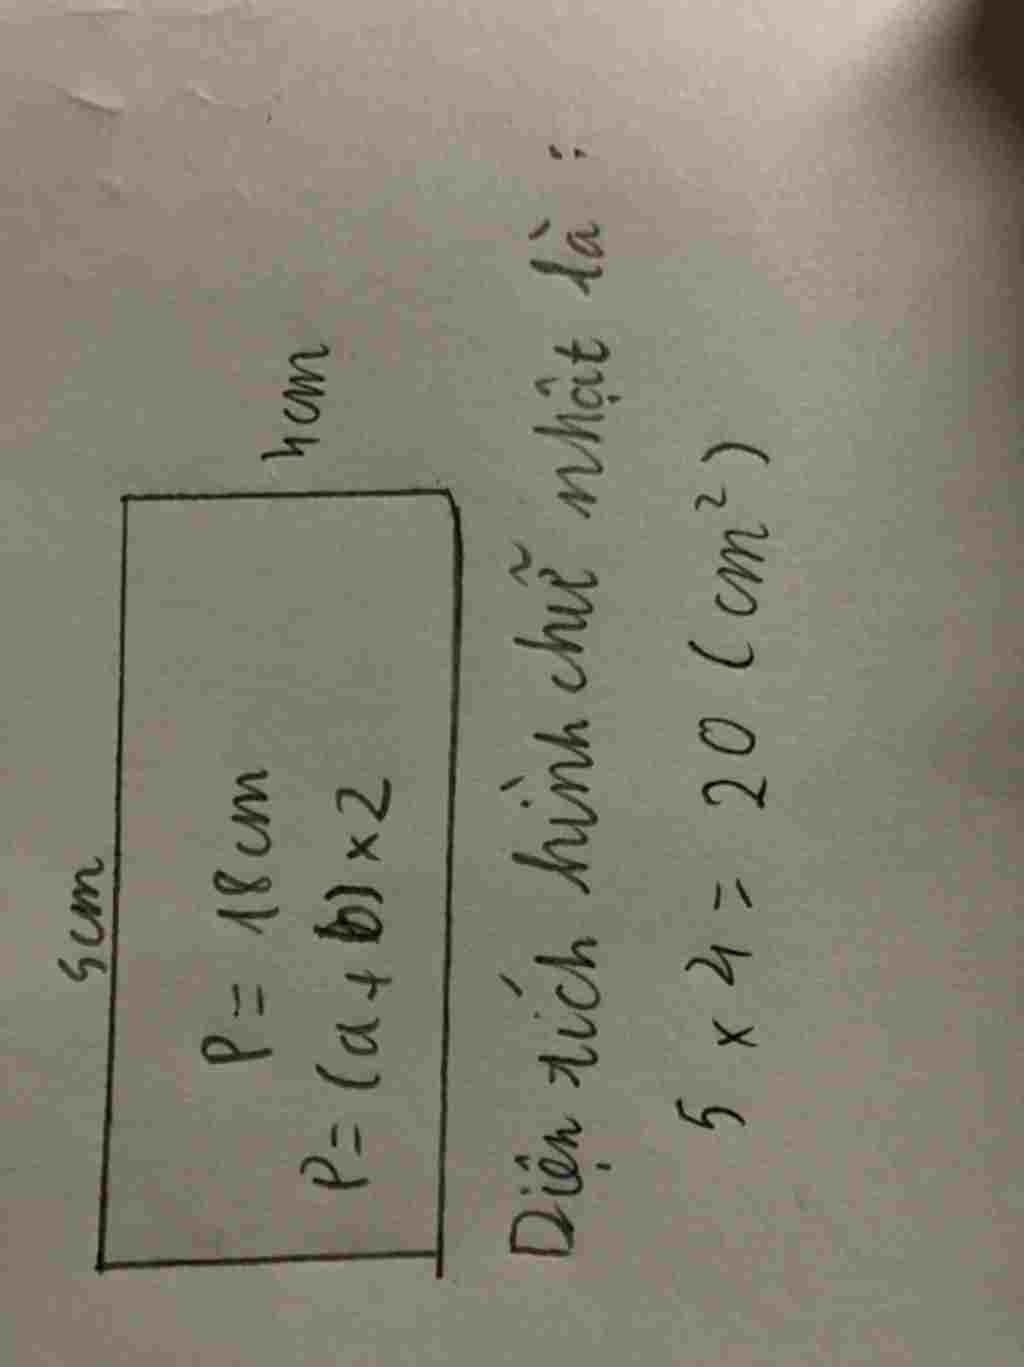 5cm
P = 18cm
4cm
P = (a + b) x 2
Diện tích hình chữ nhật là :
5 x 4 = 20 (cm²)